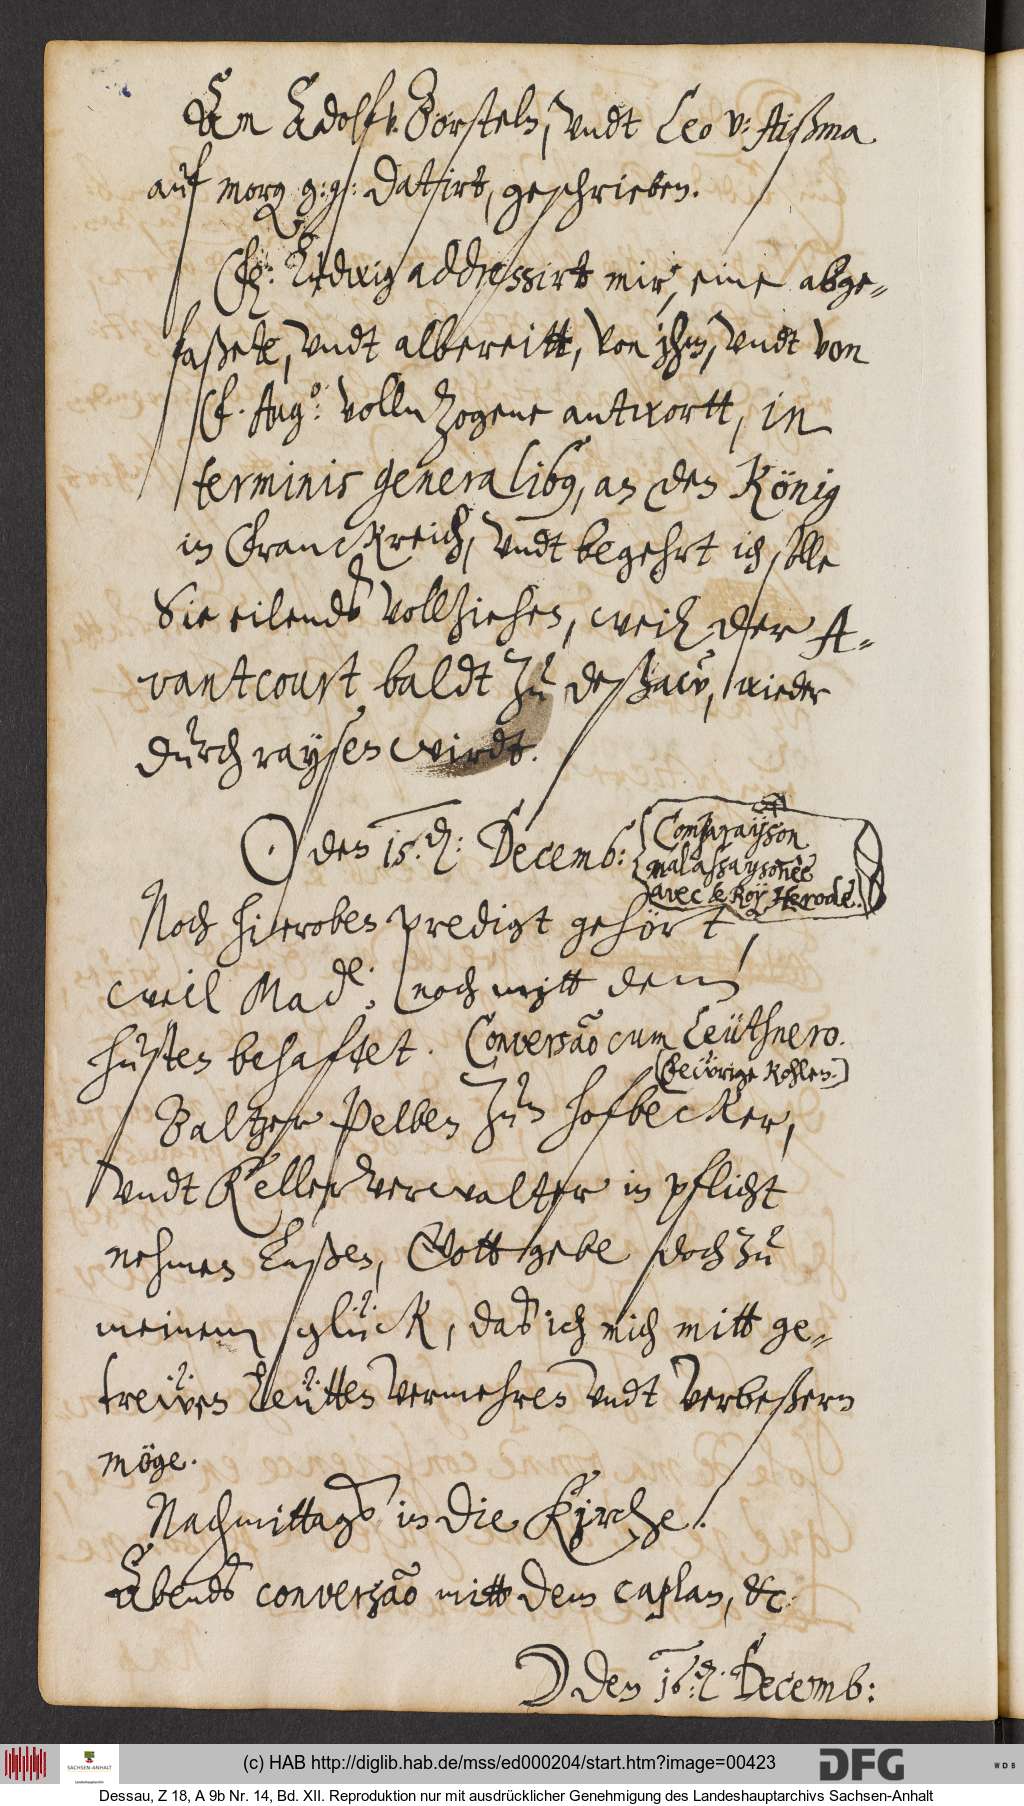 An Adolf v. Börsteln, vndt Leo v: Aißma
auf morg g:g: datirt, geschrieben.
F: Ludwig addressirt mir, eine abge-
faßete, vndt albereitt, von ihm, vndt von
F. Aug°: vollnzogene antwortt, in
terminis generalib9, an den König
in Franckreich, vndt begehrt ich solle
Sie eilends vollziehen, weil der A-
vantcourt baldt zu deßaw, wieder
durch raysen wirdt.
☉ den 15.: Decemb:
{Comparayson
malassaysoneè
avec le Roy Herode.}
Noch hieroben predigt gehört,
weil Mad^e: noch mitt dem
husten behaftet. Conversão cum Leüthnero.
(Feüvrige Kohlen.)
Baltzer Pelben zum hofbecker,
vndt Kellerverwalter in pflicht
nehmen laßen, Gott gebe doch zu
meinem glück, das ich mich mitt ge-
treüen Leütten vermehren vndt verbeßern
möge.
Nachmittags in die Kirche.
Abends conversão mitt dem caplan, &c:
☽ den 16.: Decemb:
(c) HAB http://diglib.hab.de/mss/ed000204/start.htm?image=00423
SACHSEN-ANHALT
DFG
WDB
Dessau, Z 18, A 9b Nr. 14, Bd. XII. Reproduktion nur mit ausdrücklicher Genehmigung des Landeshauptarchivs Sachsen-Anhalt